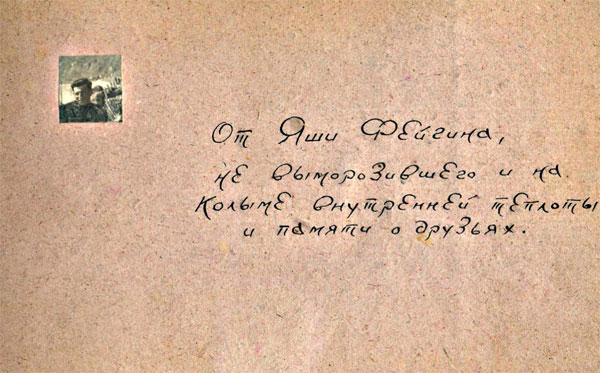 От Яши Фейгина,
не выморозившего и на
Колыме внутренней теплоты
и памяти о друзьях.